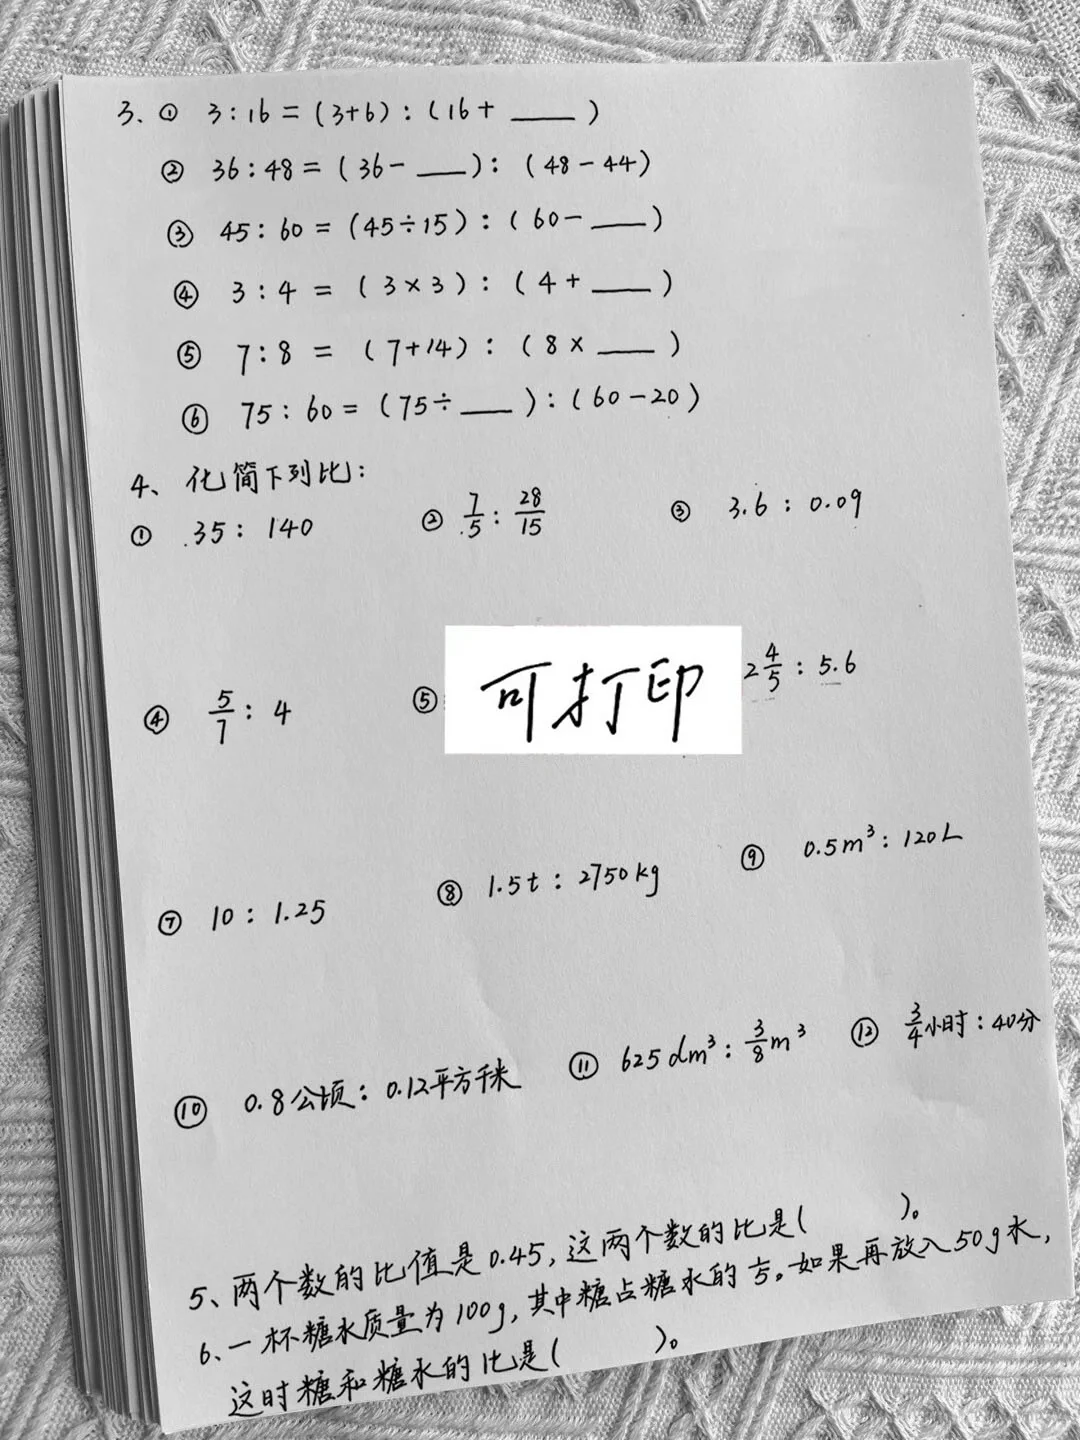 3、① 3:16=(3+6):(16+____)
② 36:48=(36-____):(48-44)
③ 45:60=(45÷15):(60-____)
④ 3:4=(3×3):(4+____)
⑤ 7:8=(7+14):(8×____)
⑥ 75:60=(75÷____):(60-20)
4、化简下列比:
① 35:140 ② 7/5:28/15 ③ 3.6:0.09
④ 5/7:4 ⑤ 可打印 2 4/5:5.6
⑦ 10:1.25 ⑧ 1.5t:2750kg ⑨ 0.5m³:120L
⑩ 0.8公顷:0.12平方千米 ⑪ 625dm³:3/8m³ ⑫ 3/4小时:40分
5、两个数的比值是0.45,这两个数的比是( )。
6、一杯糖水质量为100g,其中糖占糖水的1/5。如果再放入50g水,
这时糖和糖水的比是( )。